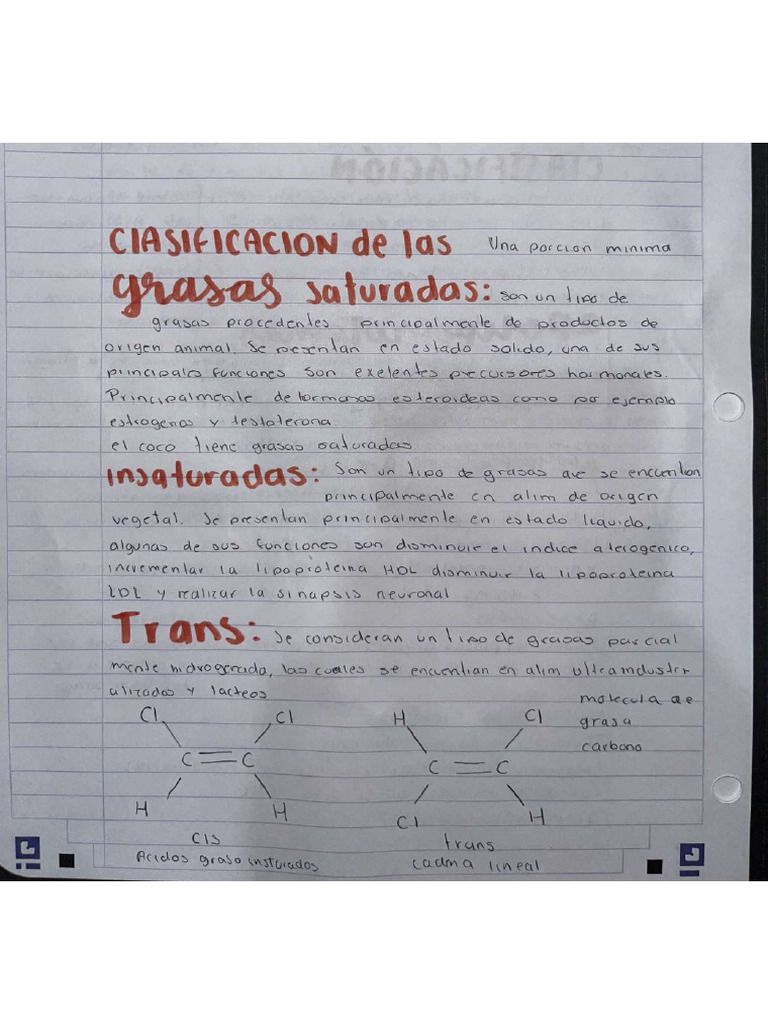 ClASIFICACION de las Una porcion minima
grasas saturadas: son un tipo de
grasas procedentes principalmente de productos de
origen animal. Se presentan en estado solido, una de sus
principals funciones son exelentes precursores hormonales.
Principalmente de hormonas esteroideas como por ejemplo
estrogenos y testoterona
el coco tiene grasas saturadas
insaturadas: Son un tipo de grasas que se encuentran
principalmente en alim de origen
vegetal. Se presentan principalmente en estado liquido,
algunas de sus funciones son disminuir el indice aterogenico,
incrementar la lipoproteina HDL disminuir la lipoproteina
LDL y realizar la sinapsis neuronal
Trans: Se consideran un tipo de grasas parcial
mente hidrogerado, las cuales se encuentran en alim ultraindustr
ializados y lacteos
molecula de
grasa
carbono
Cl Cl H Cl
C = C C = C
H H Cl H
cis trans
Acidos graso insturados cadma lineal